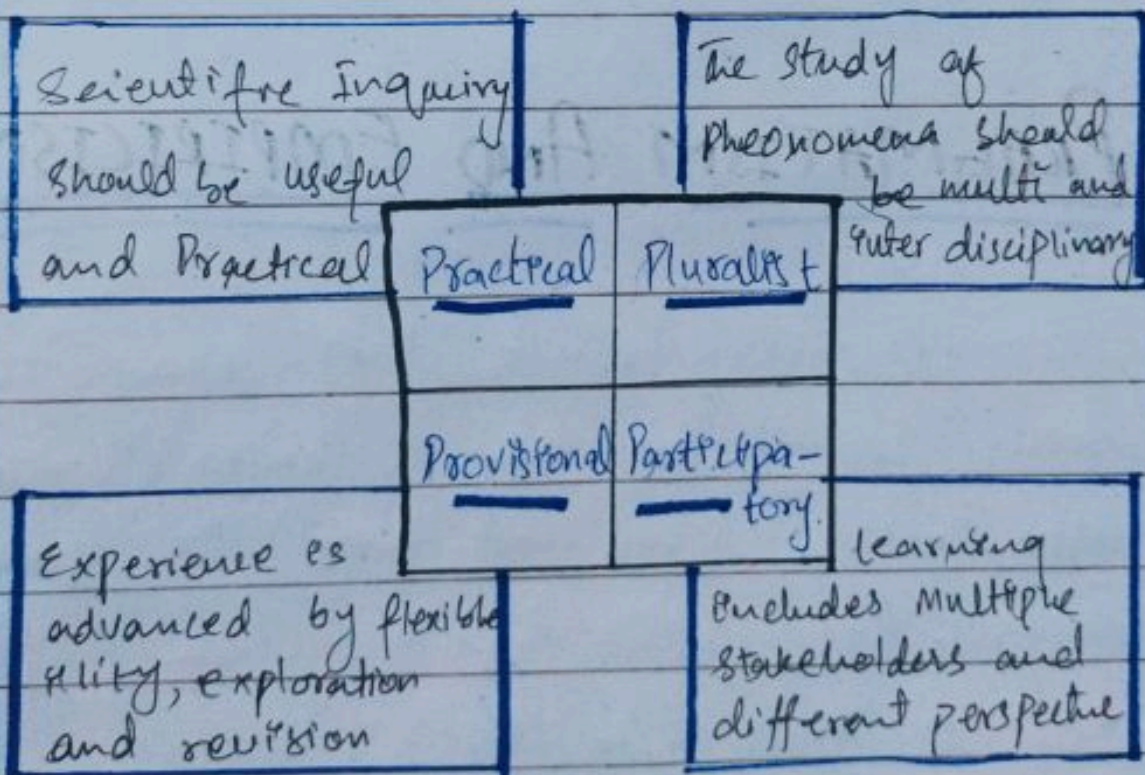 Scientific Inquiry
should be useful
and Practical
The study of
pheonomena should
be multi and
inter disciplinary
Practical
Pluralist
Provisional
Participa-
tory.
Experience is
advanced by flexible
ility, exploration
and revision
learning
includes Multiple
stakeholders and
different perspective